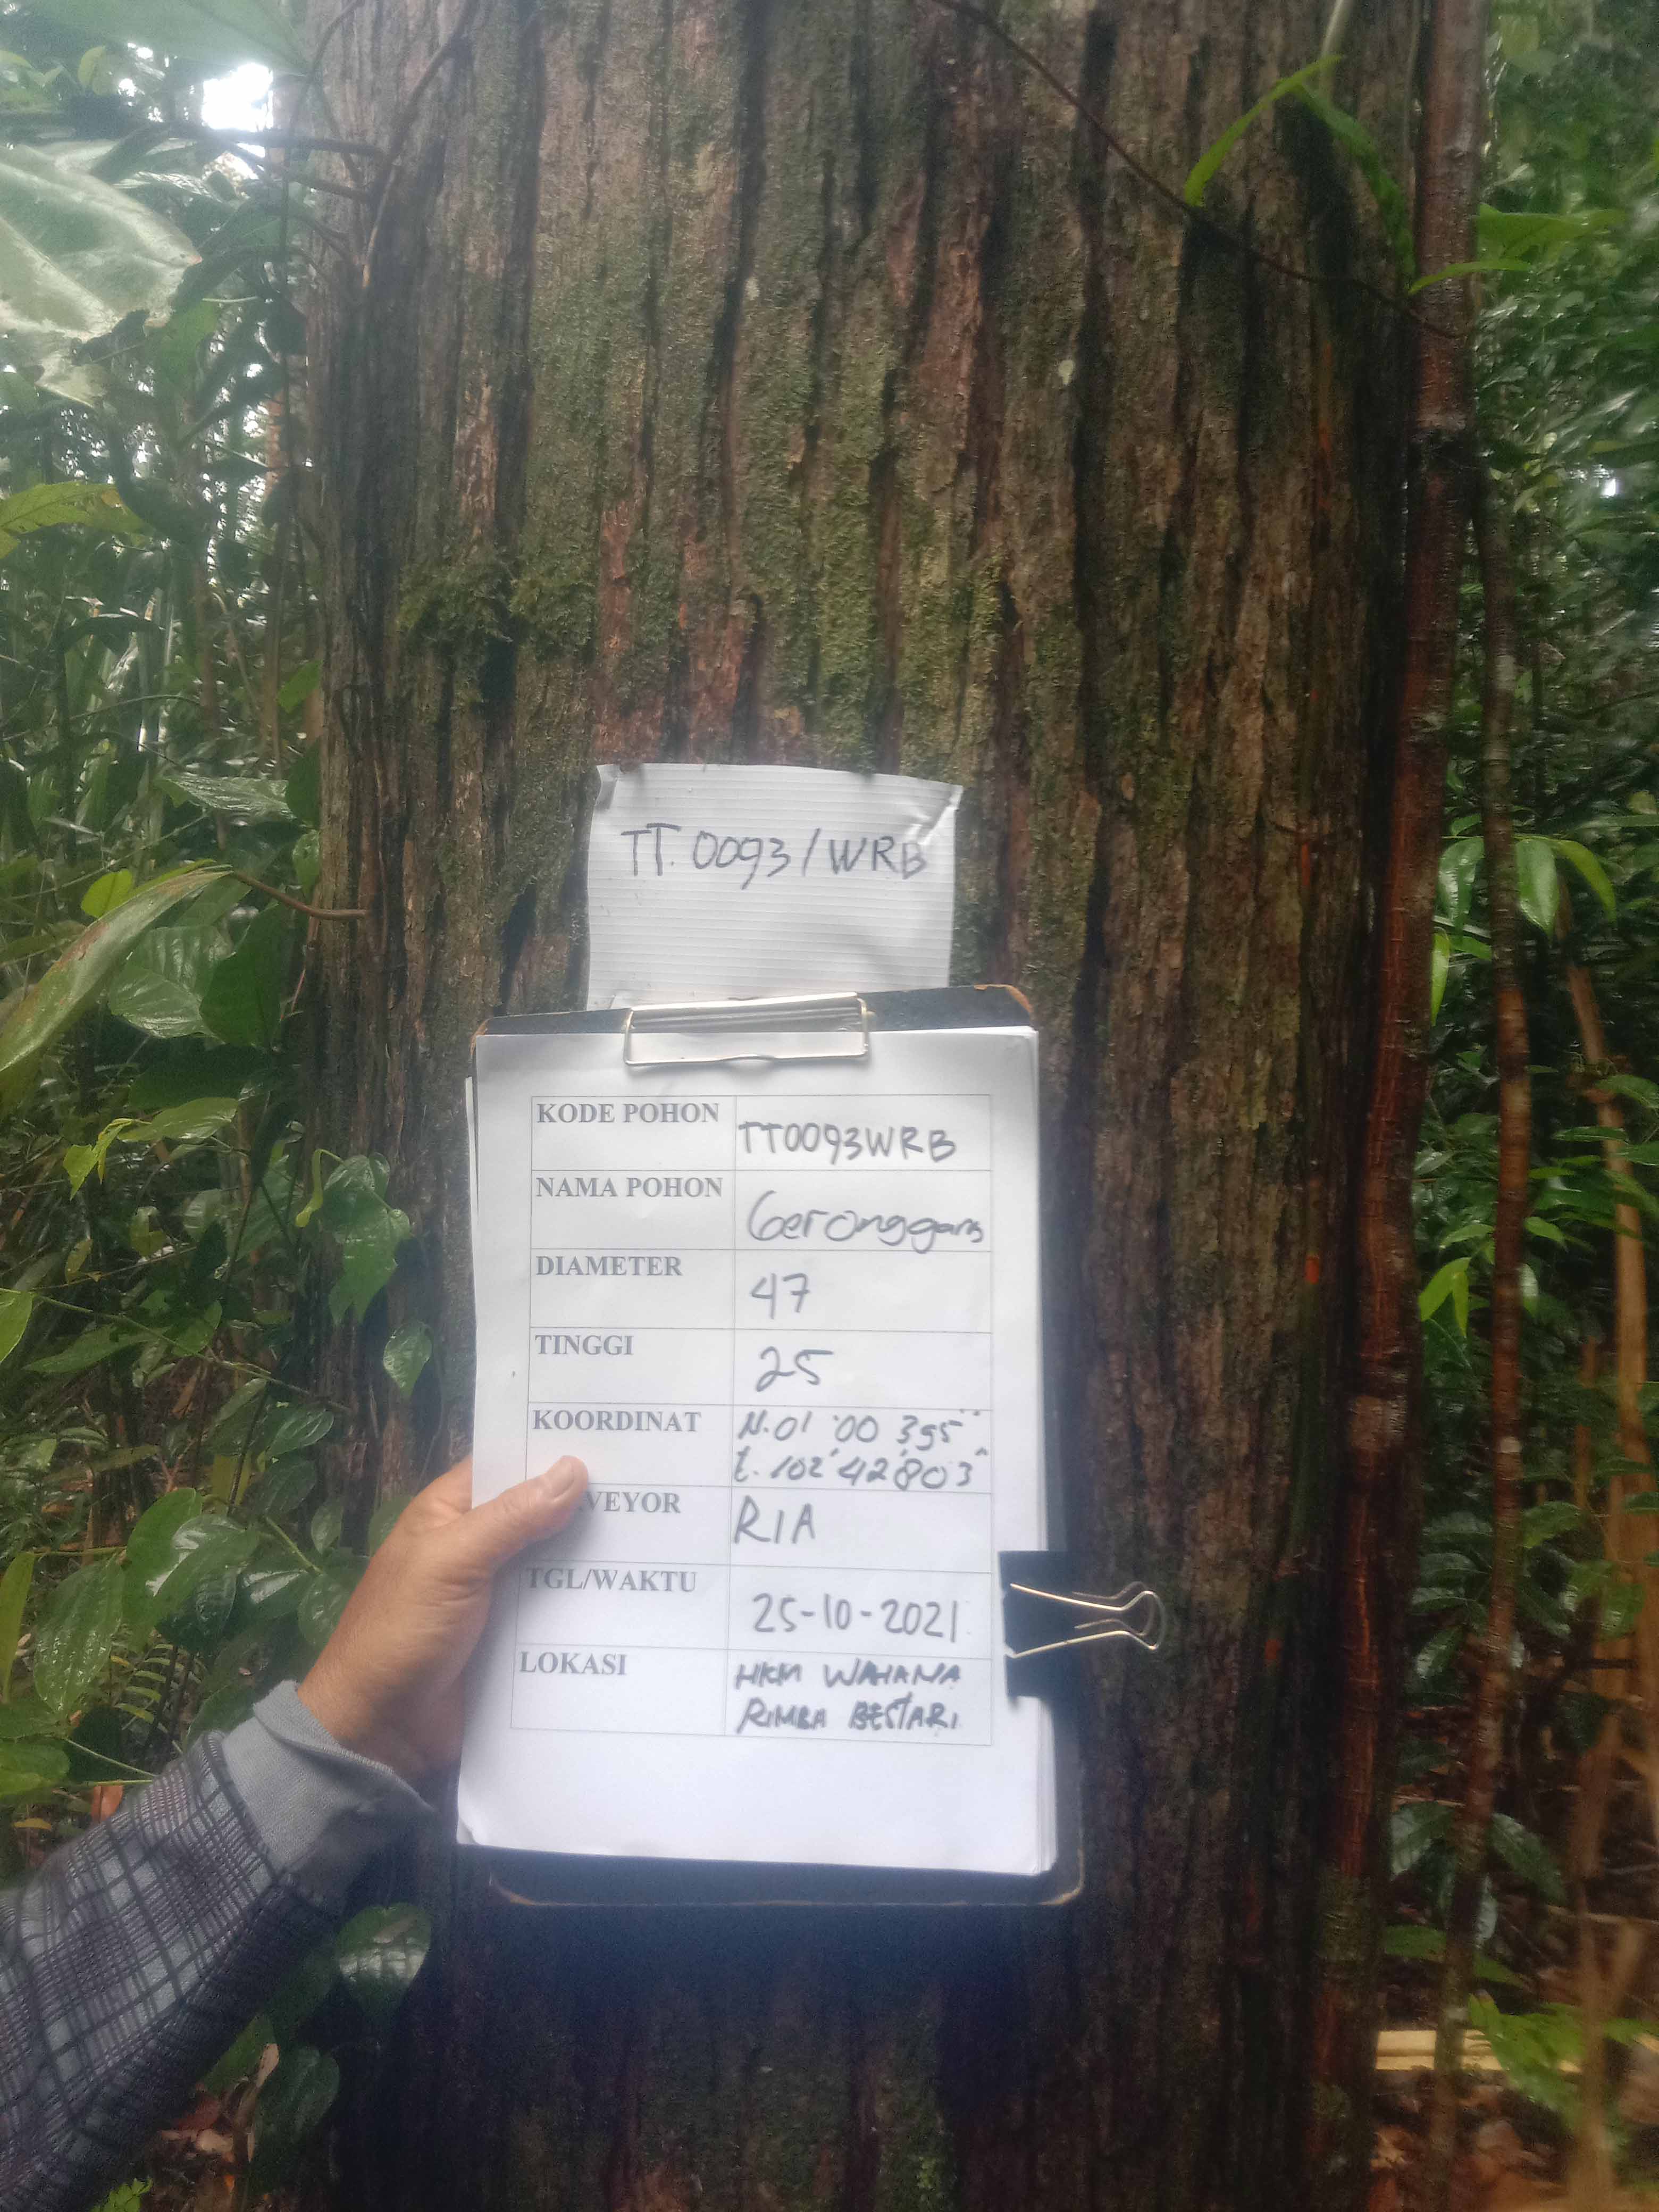 TT. 0093/WRB
KODE POHON TT0093WRB
NAMA POHON Geronggang
DIAMETER 47
TINGGI 25
KOORDINAT N.01°00'395"
E.102°42'803"
VEYOR RIA
TGL/WAKTU 25-10-2021
LOKASI HKM WAHANA
RIMBA BESTARI